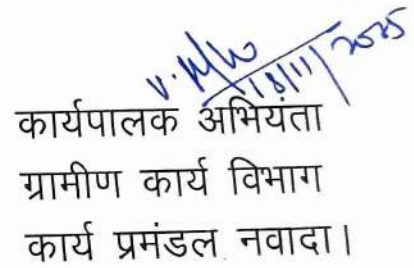 18/11/2025
कार्यपालक अभियंता
ग्रामीण कार्य विभाग
कार्य प्रमंडल नवादा।